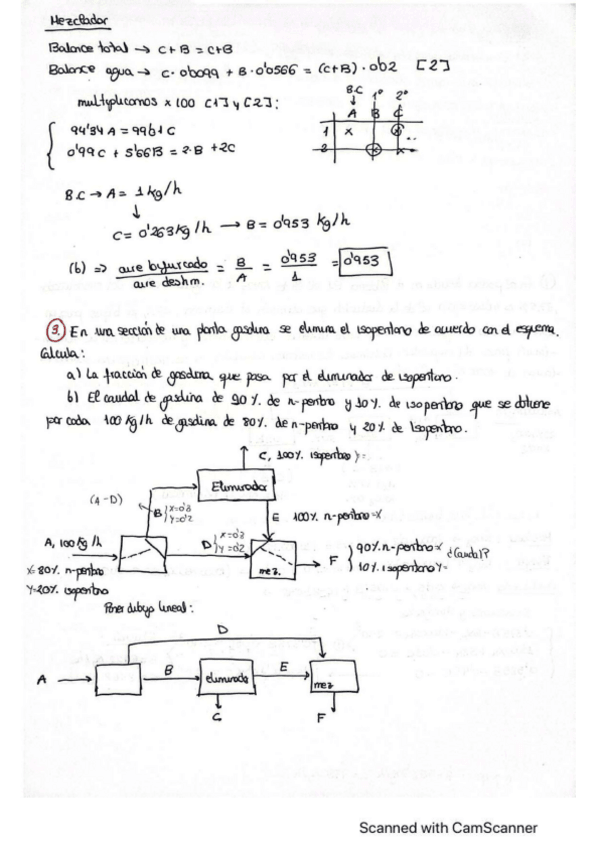 Mezclador
Balance total → C+B = C+B
Balance agua → C· 0'0099 + B· 0'0566 = (C+B) · 0'02 [2]
multiplicamos x 100 [1] y [2]:
B.C 1º 2º
A B C
1 x
2
94'34 A = 99'01 C
0'99 C + 5'66 B = 2·B + 2C
B.C → A = 1 kg/h
↓
C = 0'263 kg/h → B = 0'953 kg/h
(b) ⇒ aire bifurcado / aire deshm. = B/A = 0'953/1 = 0'953
3. En una sección de una planta gasolina se elimina el isopentano de acuerdo con el esquema.
Calcula:
a) La fracción de gasolina que pasa por el eliminador de isopentano.
b) El caudal de gasolina de 90%. de n-pentno y 10%. de isopentano que se obtiene
por cada 100 kg/h de gasolina de 80%. de n-pentno y 20%. de Isopentano.
C, 100%. isopentano Y=
Eliminador
(A-D)
B { x=0'8 Y=0'2
E 100%. n-pentano=X
A, 100 Kg/h
D { x=0'8 Y=0'2
mez.
F { 90%. n-pentno=X 10%. isopentano Y= ¿Caudal?
X=80%. n-pentno
Y=20%. isopentno
Poner dibujo lineal:
D
A B eliminador E mez
C F
Scanned with CamScanner